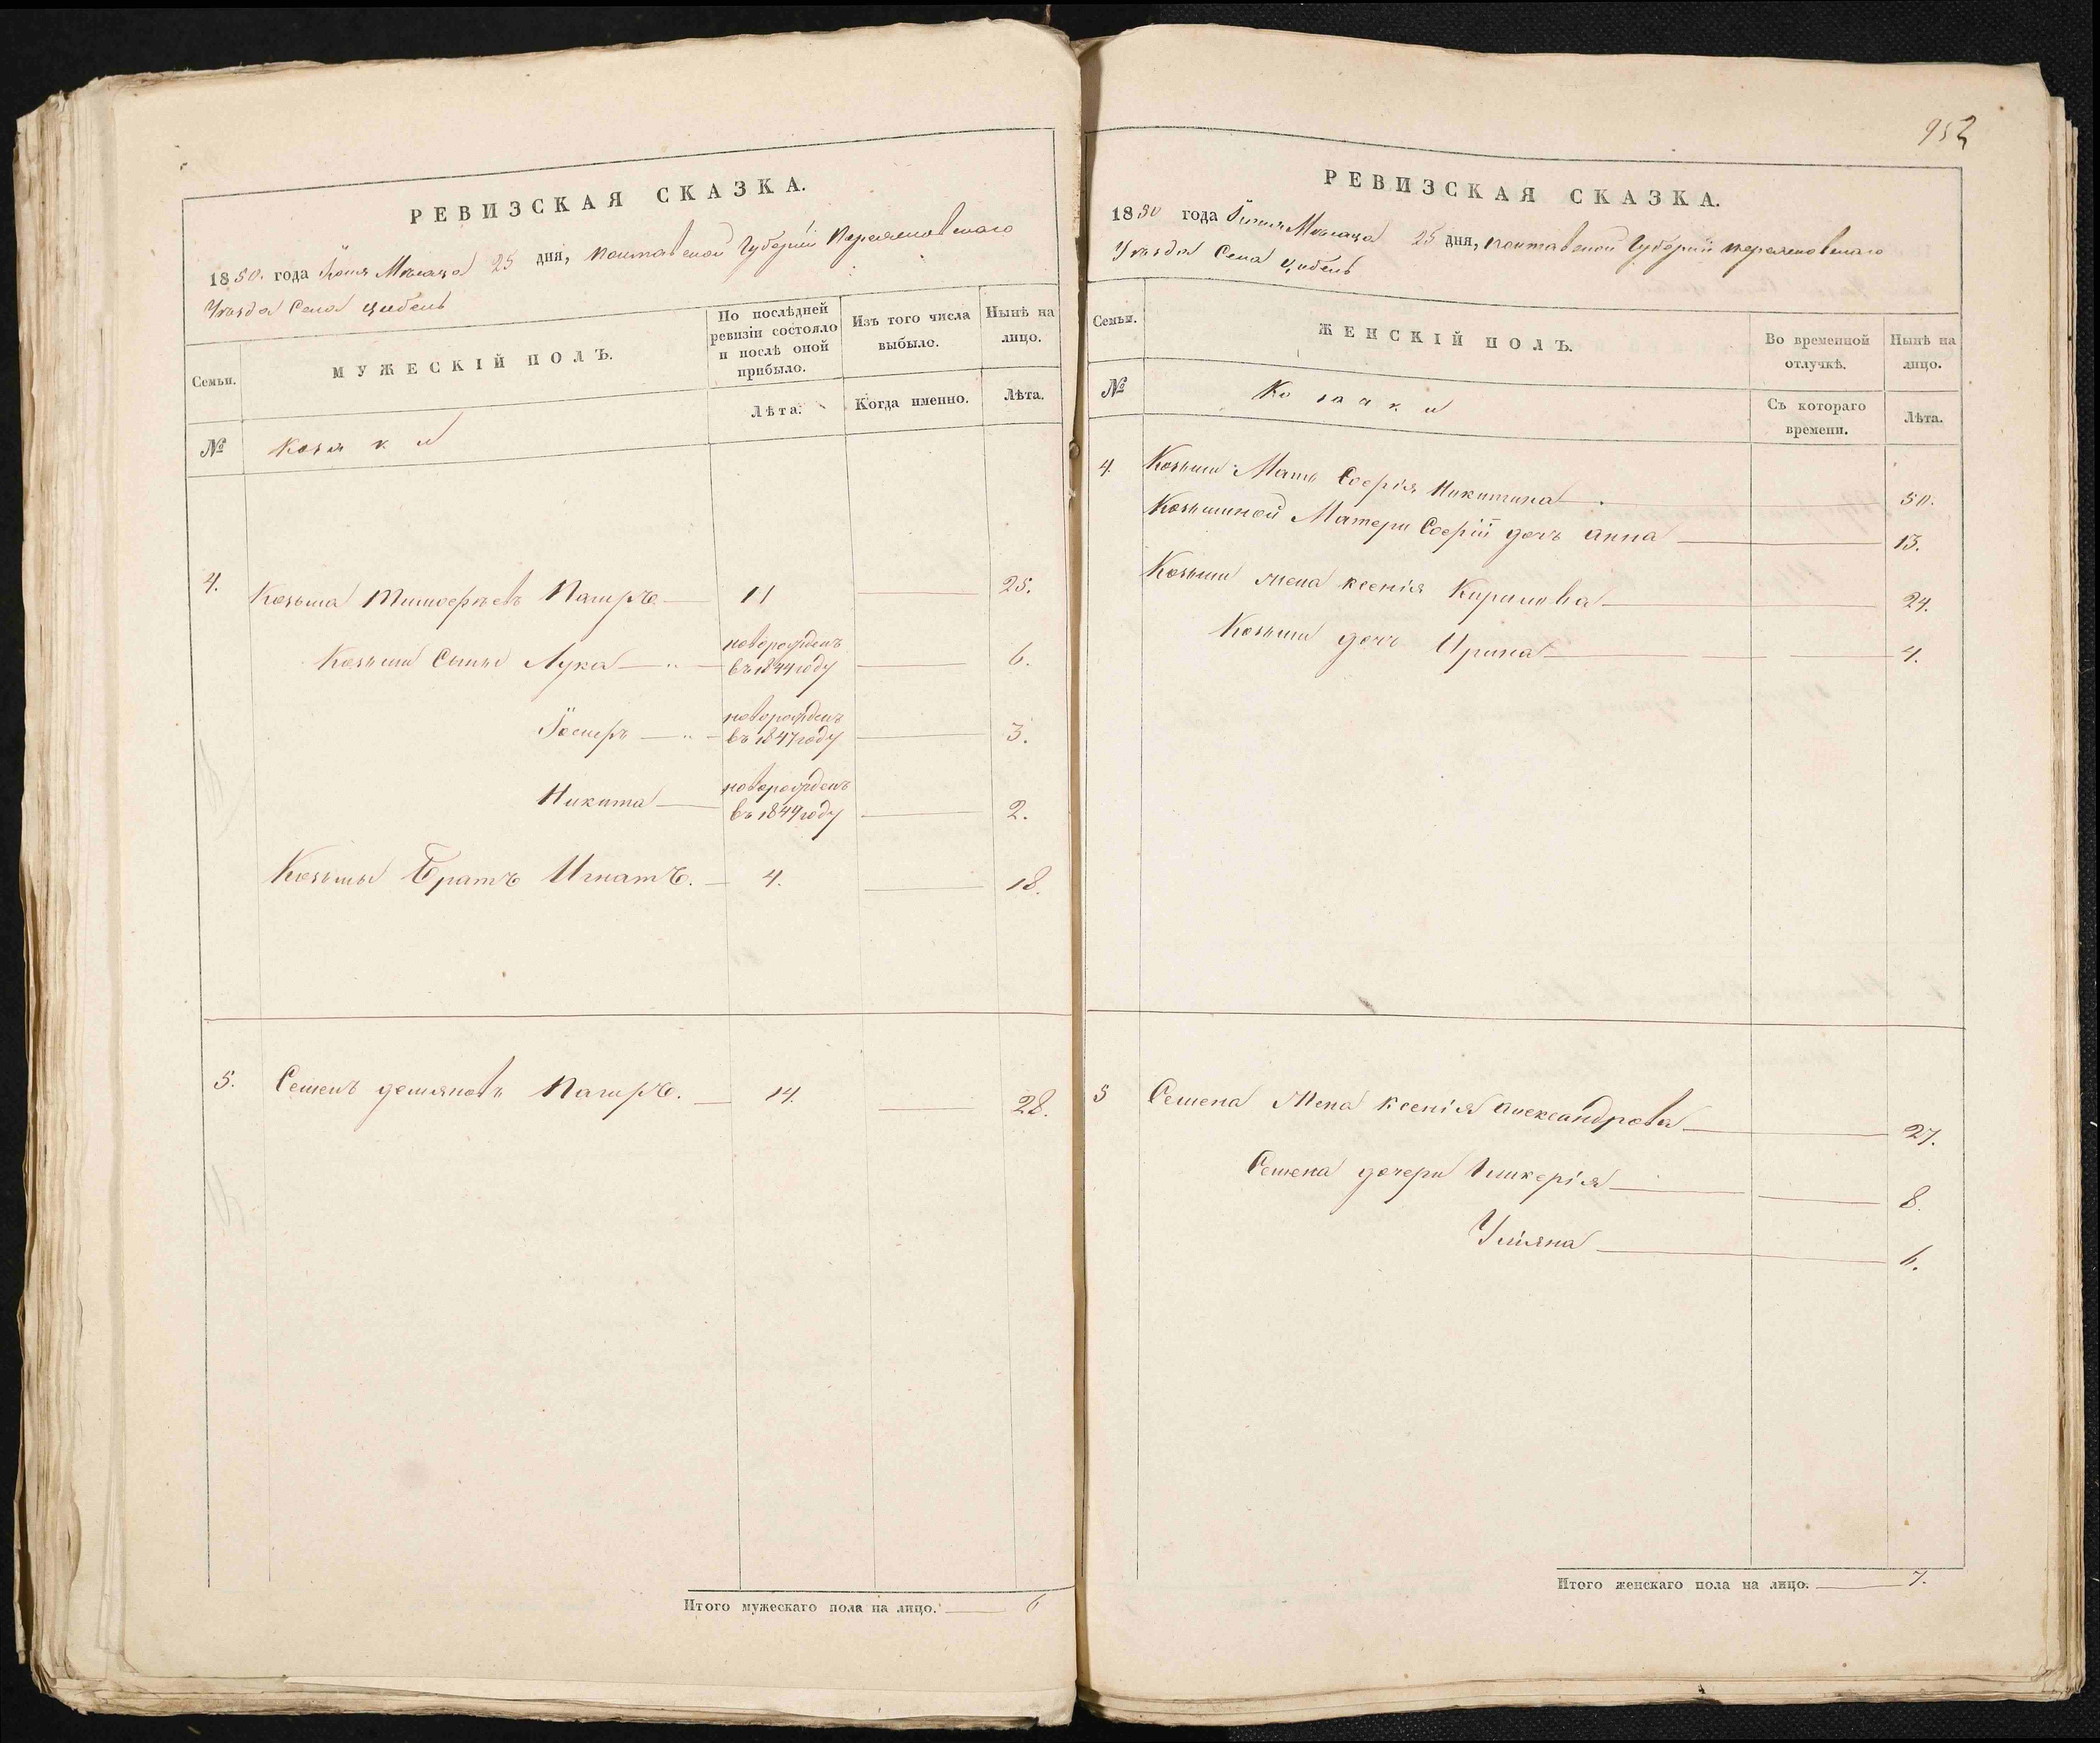 РЕВИЗСКАЯ СКАЗКА.
1850. года Іюня Мѣсяца 25 дня, Полтавской Губерніи Переяславскаго
Уѣзда Села Цибель
Семьи.
МУЖЕСКІЙ ПОЛЪ.
По послѣдней ревизіи состояло и послѣ оной прибыло.
Изъ того числа выбыло.
Нынѣ на лицо.
Лѣта.
Когда именно.
Лѣта.
№ Козаки
4. Козьма Тимофѣевъ 11 25.
Козьми Сыны Лука новорожденъ въ 1844 году 6.
Іосифъ новорожденъ въ 1847 году 3.
Никита новорожденъ въ 1849 году 2.
Козьмы Братъ Игнатъ. 4. 18.
5. Семенъ Демяновъ 14. 28.
Итого мужескаго пола на лицо. 6
952
РЕВИЗСКАЯ СКАЗКА.
1850 года Іюня Мѣсяца 25 дня, Полтавской Губерніи Переяславскаго
Уѣзда Села Цибель
Семьи.
ЖЕНСКІЙ ПОЛЪ.
Во временной отлучкѣ.
Нынѣ на лицо.
№ Козаки
Съ котораго времени.
Лѣта.
4. Козьми Мать Софія Никитина 50.
Козьминой Матери Софіи дочь Анна 13.
Козьми жена Ксенія Кирилова 24.
Козьми дочь Ирина 4.
5 Семена Жена Ксенія Александрова 27.
Семена дочери Гликерія 8.
Уліяна 6.
Итого женскаго пола на лицо. 7.